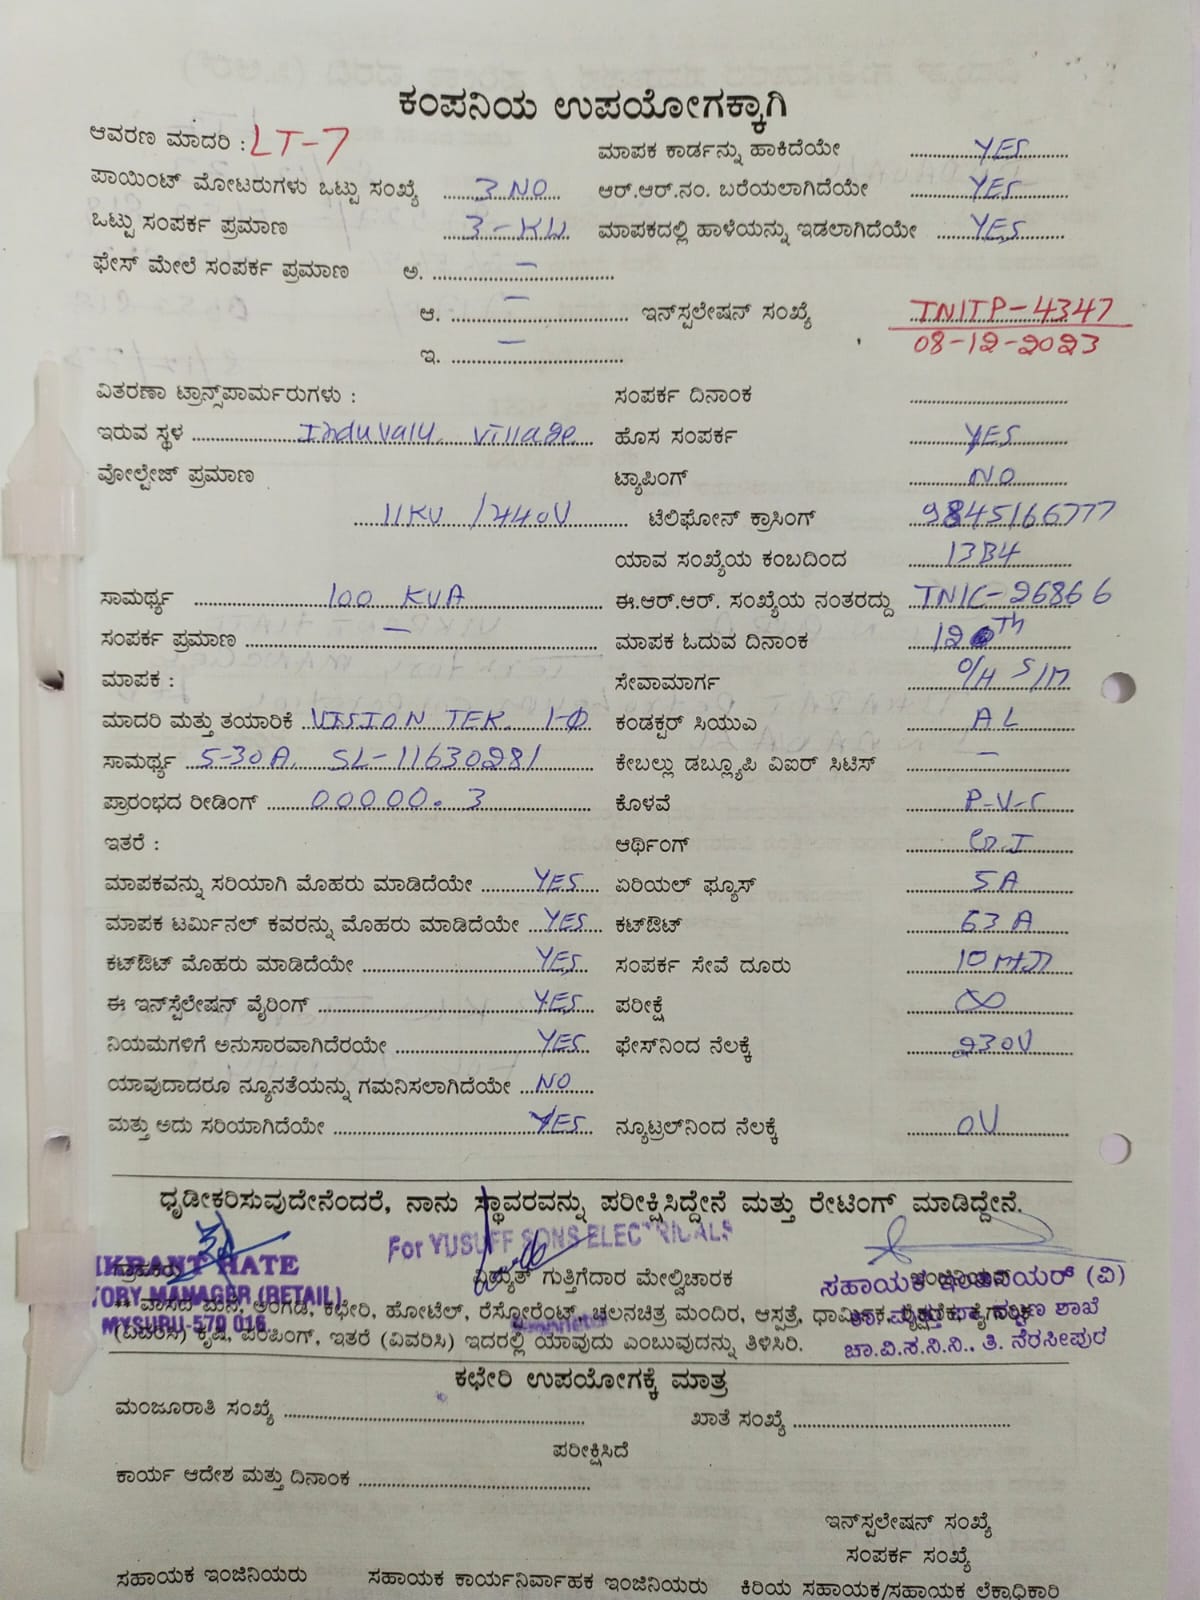 ಕಂಪನಿಯ ಉಪಯೋಗಕ್ಕಾಗಿ
ಆವರಣ ಮಾದರಿ : LT-7 ಮಾಪಕ ಕಾರ್ಡನ್ನು ಹಾಕಿದೆಯೇ YES
ಪಾಯಿಂಟ್ ಮೋಟರುಗಳು ಒಟ್ಟು ಸಂಖ್ಯೆ 3 NO ಆರ್.ಆರ್.ನಂ. ಬರೆಯಲಾಗಿದೆಯೇ YES
ಒಟ್ಟು ಸಂಪರ್ಕ ಪ್ರಮಾಣ 3-KW ಮಾಪಕದಲ್ಲಿ ಹಾಳೆಯನ್ನು ಇಡಲಾಗಿದೆಯೇ YES
ಫೇಸ್ ಮೇಲೆ ಸಂಪರ್ಕ ಪ್ರಮಾಣ ಅ. –
ಆ. – ಇನ್‌ಸ್ಪಲೇಷನ್ ಸಂಖ್ಯೆ TNITP-4347
08-12-2023
ಇ. –
ವಿತರಣಾ ಟ್ರಾನ್ಸ್‌ಪಾರ್ಮರುಗಳು : ಸಂಪರ್ಕ ದಿನಾಂಕ
ಇರುವ ಸ್ಥಳ Induvalu Village ಹೊಸ ಸಂಪರ್ಕ YES
ವೋಲ್ಟೇಜ್ ಪ್ರಮಾಣ ಟ್ಯಾಪಿಂಗ್ NO
11KV /440V ಟೆಲಿಫೋನ್ ಕ್ರಾಸಿಂಗ್ 9845166777
ಯಾವ ಸಂಖ್ಯೆಯ ಕಂಬದಿಂದ 13B4
ಸಾಮರ್ಥ್ಯ 100 KVA ಈ.ಆರ್.ಆರ್. ಸಂಖ್ಯೆಯ ನಂತರದ್ದು TNIC-26866
ಸಂಪರ್ಕ ಪ್ರಮಾಣ – ಮಾಪಕ ಓದುವ ದಿನಾಂಕ
ಮಾಪಕ : ಸೇವಾಮಾರ್ಗ O/H S/M
ಮಾದರಿ ಮತ್ತು ತಯಾರಿಕೆ VISION TEK. 1-Φ ಕಂಡಕ್ಟರ್ ಸಿಯುಎ AL
ಸಾಮರ್ಥ್ಯ 5-30A, SL-11630281 ಕೇಬಲ್ಲು ಡಬ್ಲ್ಯೂಪಿ ವಿಐರ್ ಸಿಟಿಸ್ –
ಪ್ರಾರಂಭದ ರೀಡಿಂಗ್ 00000.3 ಕೊಳವೆ P-V-C
ಇತರೆ : ಆರ್ಥಿಂಗ್ G.I
ಮಾಪಕವನ್ನು ಸರಿಯಾಗಿ ಮೊಹರು ಮಾಡಿದೆಯೇ YES ಏರಿಯಲ್ ಫ್ಯೂಸ್ 5A
ಮಾಪಕ ಟರ್ಮಿನಲ್ ಕವರನ್ನು ಮೊಹರು ಮಾಡಿದೆಯೇ YES ಕಟ್‌ಔಟ್ 63 A
ಕಟ್‌ಔಟ್ ಮೊಹರು ಮಾಡಿದೆಯೇ YES ಸಂಪರ್ಕ ಸೇವೆ ದೂರು 10
ಈ ಇನ್‌ಸ್ಪೆಲೇಷನ್ ವೈರಿಂಗ್ YES ಪರೀಕ್ಷೆ ∞
ನಿಯಮಗಳಿಗೆ ಅನುಸಾರವಾಗಿದೆರಯೇ YES ಫೇಸ್‌ನಿಂದ ನೆಲಕ್ಕೆ 230V
ಯಾವುದಾದರೂ ನ್ಯೂನತೆಯನ್ನು ಗಮನಿಸಲಾಗಿದೆಯೇ NO
ಮತ್ತು ಅದು ಸರಿಯಾಗಿದೆಯೇ YES ನ್ಯೂಟ್ರಲ್‌ನಿಂದ ನೆಲಕ್ಕೆ 0V
ಧೃಡೀಕರಿಸುವುದೇನೆಂದರೆ, ನಾನು ಸ್ಥಾವರವನ್ನು ಪರೀಕ್ಷಿಸಿದ್ದೇನೆ ಮತ್ತು ರೇಟಿಂಗ್ ಮಾಡಿದ್ದೇನೆ.
For YUSUFF SONS ELECTRICALS
IKRANT HATE
ಗ್ರಾಹಕರು ವಿದ್ಯುತ್ ಗುತ್ತಿಗೆದಾರ ಮೇಲ್ವಿಚಾರಕ ಸಹಾಯಕ ಇಂಜಿನಿಯರ್ (ವಿ)
TORY MANAGER (RETAIL)
MYSURU-570 016
** ವಾಸದ ಮನೆ, ಅಂಗಡಿ, ಕಛೇರಿ, ಹೋಟೆಲ್, ರೆಸ್ಟೋರೆಂಟ್, ಚಲನಚಿತ್ರ ಮಂದಿರ, ಆಸ್ಪತ್ರೆ, ಧಾರ್ಮಿಕ, ಶಾಖೆ
(ವಿವರಿಸಿ) ಕೃಷಿ, ಪಂಪಿಂಗ್, ಇತರೆ (ವಿವರಿಸಿ) ಇದರಲ್ಲಿ ಯಾವುದು ಎಂಬುವುದನ್ನು ತಿಳಿಸಿರಿ. ಚಾ.ವಿ.ಸ.ನಿ.ನಿ., ತಿ. ನರಸೀಪುರ
ಕಛೇರಿ ಉಪಯೋಗಕ್ಕೆ ಮಾತ್ರ
ಮಂಜೂರಾತಿ ಸಂಖ್ಯೆ ಖಾತೆ ಸಂಖ್ಯೆ
ಪರೀಕ್ಷಿಸಿದೆ
ಕಾರ್ಯ ಆದೇಶ ಮತ್ತು ದಿನಾಂಕ
ಇನ್‌ಸ್ಪಲೇಷನ್ ಸಂಖ್ಯೆ
ಸಂಪರ್ಕ ಸಂಖ್ಯೆ
ಸಹಾಯಕ ಇಂಜಿನಿಯರು ಸಹಾಯಕ ಕಾರ್ಯನಿರ್ವಾಹಕ ಇಂಜಿನಿಯರು ಕಿರಿಯ ಸಹಾಯಕ/ಸಹಾಯಕ ಲೆಕ್ಕಾಧಿಕಾರಿ